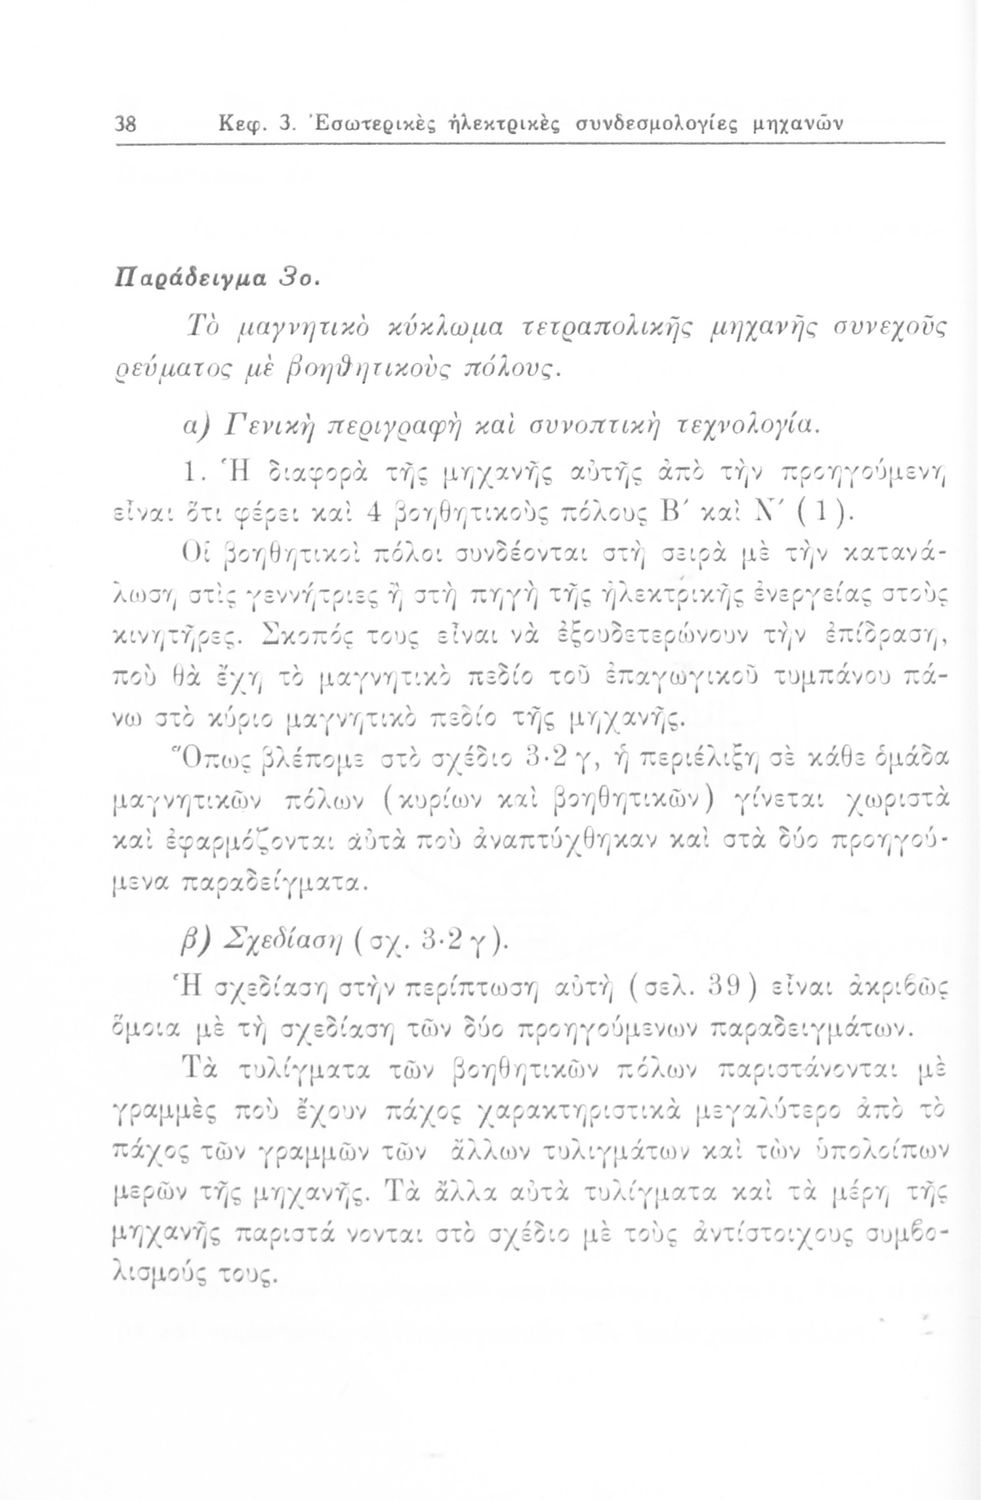 38 Κεφ. 3. Ἐσωτερικὲς ἠλεκτρικὲς συνδεσμολογίες μηχανῶν
Παράδειγμα 3ο.
Τὸ μαγνητικὸ κύκλωμα τετραπολικῆς μηχανῆς συνεχοῦς
ρεύματος μὲ βοηθητικοὺς πόλους.
α) Γενικὴ περιγραφὴ καὶ συνοπτικὴ τεχνολογία.
1. Ἡ διαφορὰ τῆς μηχανῆς αὐτῆς ἀπὸ τὴν προηγούμενη
εἶναι ὅτι φέρει καὶ 4 βοηθητικοὺς πόλους Β΄ καὶ Ν΄ (1).
Οἱ βοηθητικοὶ πόλοι συνδέονται στὴ σειρὰ μὲ τὴν κατανά-
λωση στὶς γεννήτριες ἢ στὴ πηγὴ τῆς ἠλεκτρικῆς ἐνεργείας στοὺς
κινητῆρες. Σκοπός τους εἶναι νὰ ἐξουδετερώνουν τὴν ἐπίδραση,
ποὺ θὰ ἔχη τὸ μαγνητικὸ πεδίο τοῦ ἐπαγωγικοῦ τυμπάνου πά-
νω στὸ κύριο μαγνητικὸ πεδίο τῆς μηχανῆς.
Ὅπως βλέπομε στὸ σχέδιο 3·2 γ, ἡ περιέλιξη σὲ κάθε ὁμάδα
μαγνητικῶν πόλων (κυρίων καὶ βοηθητικῶν) γίνεται χωριστὰ
καὶ ἐφαρμόζονται αὐτὰ ποὺ ἀναπτύχθηκαν καὶ στὰ δύο προηγού-
μενα παραδείγματα.
β) Σχεδίαση (σχ. 3·2 γ).
Ἡ σχεδίαση στὴν περίπτωση αὐτὴ (σελ. 39) εἶναι ἀκριβῶς
ὅμοια μὲ τὴ σχεδίαση τῶν δύο προηγούμενων παραδειγμάτων.
Τὰ τυλίγματα τῶν βοηθητικῶν πόλων παριστάνονται μὲ
γραμμὲς ποὺ ἔχουν πάχος χαρακτηριστικὰ μεγαλύτερο ἀπὸ τὸ
πάχος τῶν γραμμῶν τῶν ἄλλων τυλιγμάτων καὶ τῶν ὑπολοίπων
μερῶν τῆς μηχανῆς. Τὰ ἄλλα αὐτὰ τυλίγματα καὶ τὰ μέρη τῆς
μηχανῆς παριστά νονται στὸ σχέδιο μὲ τοὺς ἀντίστοιχους συμβο-
λισμούς τους.